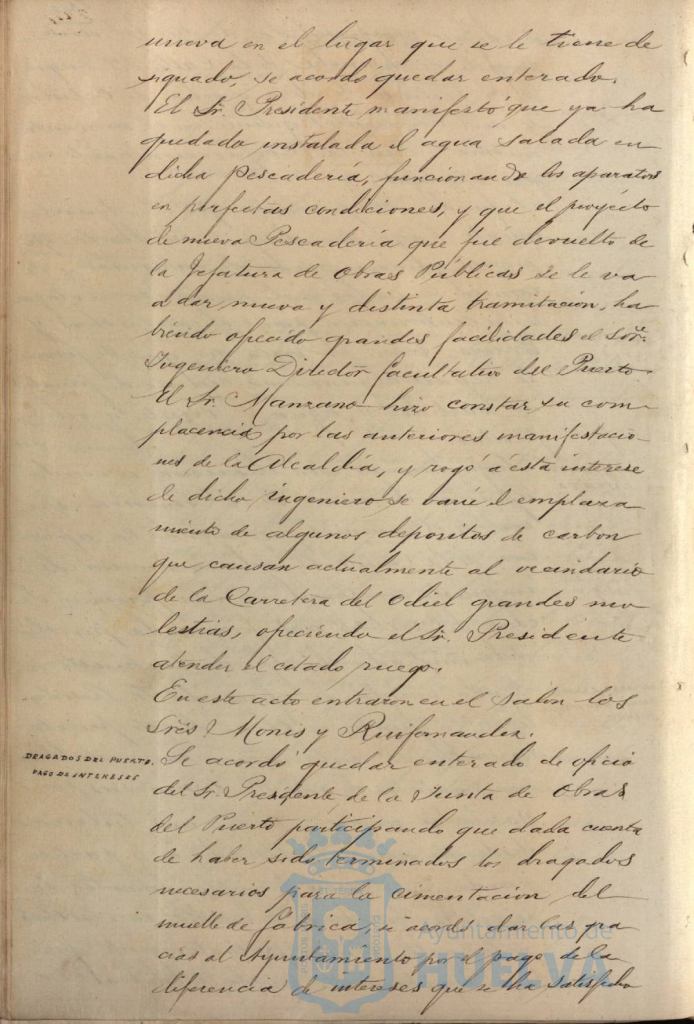 nueva en el lugar que se le tiene de
signado, se acordó quedar enterado.
El Sr. Presidente manifestó que ya ha
quedado instalada el agua salada en
dicha Pescadería, funcionando los aparatos
en perfectas condiciones, y que el proyecto
de nueva Pescadería que fué devuelto de
la Jefatura de Obras Públicas se le va
a dar nueva y distinta tramitación, ha
biendo ofrecido grandes facilidades el Sor.
Ingeniero Director facultativo del Puerto.
El Sr. Manzano hizo constar su com-
placencia por las anteriores manifestacio-
nes de la Alcaldía, y rogó á ésta interese
de dicho ingeniero se varíe el emplaza
miento de algunos depositos de carbon
que causan actualmente al vecindario
de la Carretera del Odiel grandes mo
lestias, ofreciendo el Sr. Presidente
atender el citado ruego.
En este acto entraron en el salon los
Srés Monis y Ruifernandez.
DRAGADOS DEL PUERTO.
PAGO DE INTERESES
Se acordó quedar enterado de oficio
del Sr. Presidente de la Junta de Obras
del Puerto participando que dada cuenta
de haber sido terminados los dragados
necesarios para la cimentación del
muelle de fábrica, se acordó dar las gra
cias al Ayuntamiento por el pago de la
diferencia de intereses que se ha satisfecho
Ayuntamiento de
HUELVA